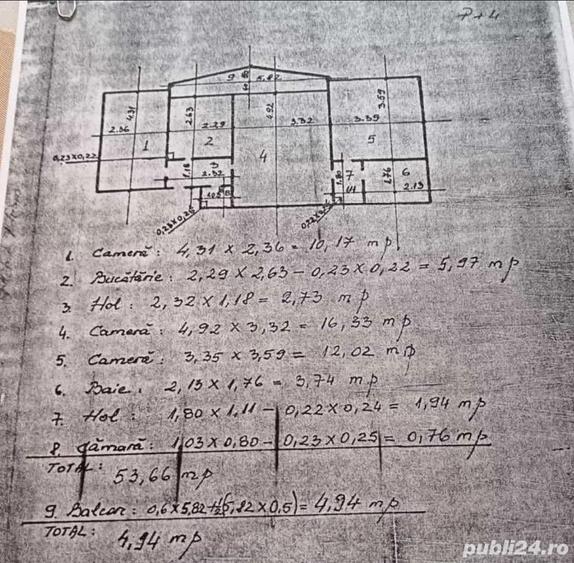 P+4
9 5,82
4,31 2,63 4,92 3,59
2.36 2.29 3.32 3.39
1 2 5
0,23x0,22 4
1,18 3 1,80 7 1,76 6
2.32 2.13
0,23x0,25 0,22x0,25
1. Cameră: 4,31 x 2,36 = 10,17 mp
2. Bucătărie: 2,29 x 2,63 - 0,23 x 0,22 = 5,97 mp
3. Hol: 2,32 x 1,18 = 2,73 mp
4. Cameră: 4,92 x 3,32 = 16,33 mp
5. Cameră: 3,35 x 3,59 = 12,02 mp
6. Baie: 2,13 x 1,76 = 3,74 mp
7. Hol: 1,80 x 1,11 - 0,22 x 0,24 = 1,94 mp
8. Cămară: 1,03 x 0,80 - 0,23 x 0,25 = 0,76 mp
TOTAL:
53,66 mp
9. Balcon: 0,6 x 5,82 + ½(5,82 x 0,5) = 4,94 mp
TOTAL:
4,94 mp
publi24.ro